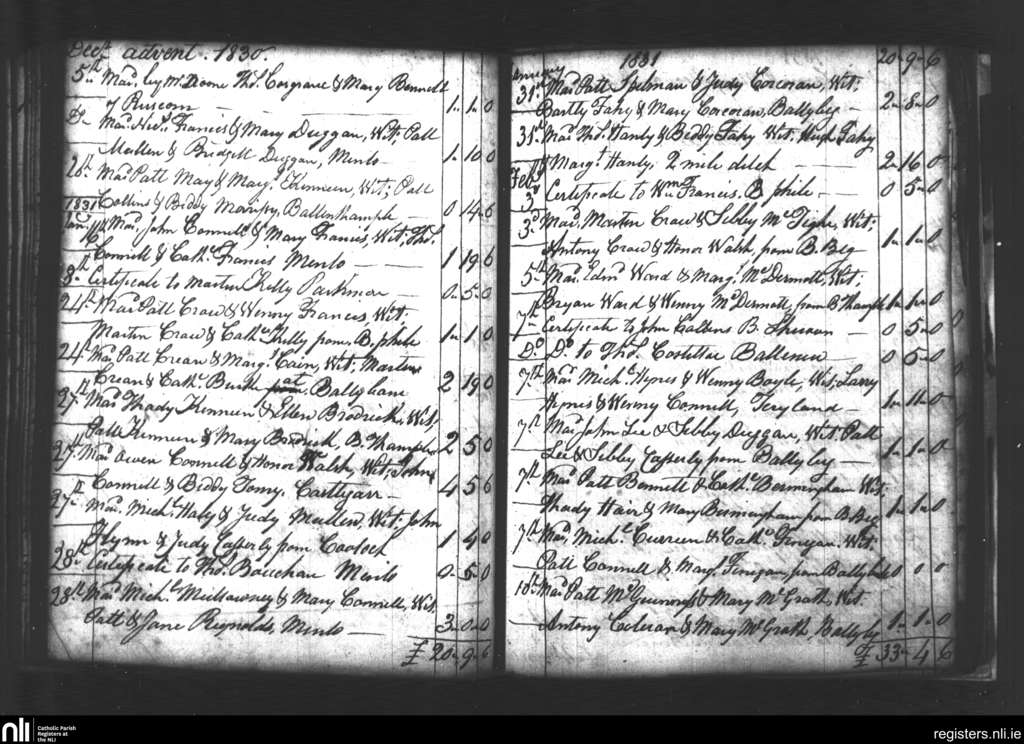 Decr advent. 1830.
5th Mard. by Mr Doone Thos. Cosgrave & Mary Bennett
of Ruscom 1 - 1 - 0
Do Mard. Franeis & Mary Duggan, Wit; Patt
Mullen & Bridgett Duggan, Menlo 1 - 10 0
26th Mard Patt May & Margt. Kenneen, Wit; Patt
Collins & Biddy 0 14 6
1831
Jany 16th Mard. John Connell & Mary Franeis, Wit; Thos.
Connell & Cathe. Franeis Menlo 1 19 6
Certificate to Martin Kelly Parkmore 0 - 5 - 0
24th Mard Patt Craw & Wenny Franeis, Wit.
Martin Craw & Cathe. Kelly from B. phile 1 - 1 0
24th Mard Patt Crean & Margt. Cain, Wit. Martin
Crean & Cathe. Burk at Ballybane 2 19 0
27th Mard Thady Kenneen & Ellen Brodrick, Wit;
Patt Kenneen & Mary Brodrick B. Thample 2 5 0
27th Mard Owen Connell & Honor Walsh, Wit; John
Connell & Biddy Castlegarr 4 5 6
27th Mard. Michl. & Judy Mullen, Wit; John
Flynn & Judy Cafferly from Cooloch 1 4 0
28th Certificate to Thos. Menlo 0 - 5 0
28th Mard Michl. Mullowney & Mary Connell, Wit
Patt & Jane Reynolds, Menlo 3 - 0 - 0
£ 20 - 9 - 6
1831 20 - 9 - 6
January
31st Mard Patt Spelman & Judy Corcoran, Wit;
Bartly Fahy & Mary Corcoran, Ballybeg 2 - 8 - 0
31st Mard Thos. Hanly & Biddy Fahy Wit; Hugh Fahy
& Margt. Hanly, 2 mile ditch 2 - 16 0
Feby
3d Certificate to Wm Franeis. B phile 0 5 - 0
3d Mard. Martin Craw & Sibby McTighe, Wit;
Antony Craw & Honor Walsh from B. Beg 1 - 1 - 0
5th Mard. Edmd Ward & Margt. McDermott, Wit;
Bryan Ward & Wenny McDermott, from B. Thample 1 - 1 - 0
7th Certificate to John Collins B. 0 5 - 0
Do Do to Thos. Costelloe 0 5 - 0
7th Mard Michl. Hynes & Wenny Boyle, Wit; Larry
Hynes & Wenny Connell, Teryland 1 - 11 - 0
7th Mard John Lee & Sibby Duggan, Wit; Patt
Lee & Sibby Cafferly from Ballybeg 1 - 1 - 0
7th Mard Patt Bennett & Cathe. Bermingham Wit;
Thady Hair & Mary Bermingham from B. Beg 1 - 1 - 0
7th Mard. Michl. Curreen & Cathe. Finegan. Wit;
Patt Connell & Margt. Finigan, from 0 0 - 0
10th Mard Patt & Mary McGrath, Wit
Antony Cocleran & Mary McGrath, Ballyby 1 - 1 - 0
£ 33 - 4 6
nli
Catholic Parish
Registers at
the NLI
registers.nli.ie